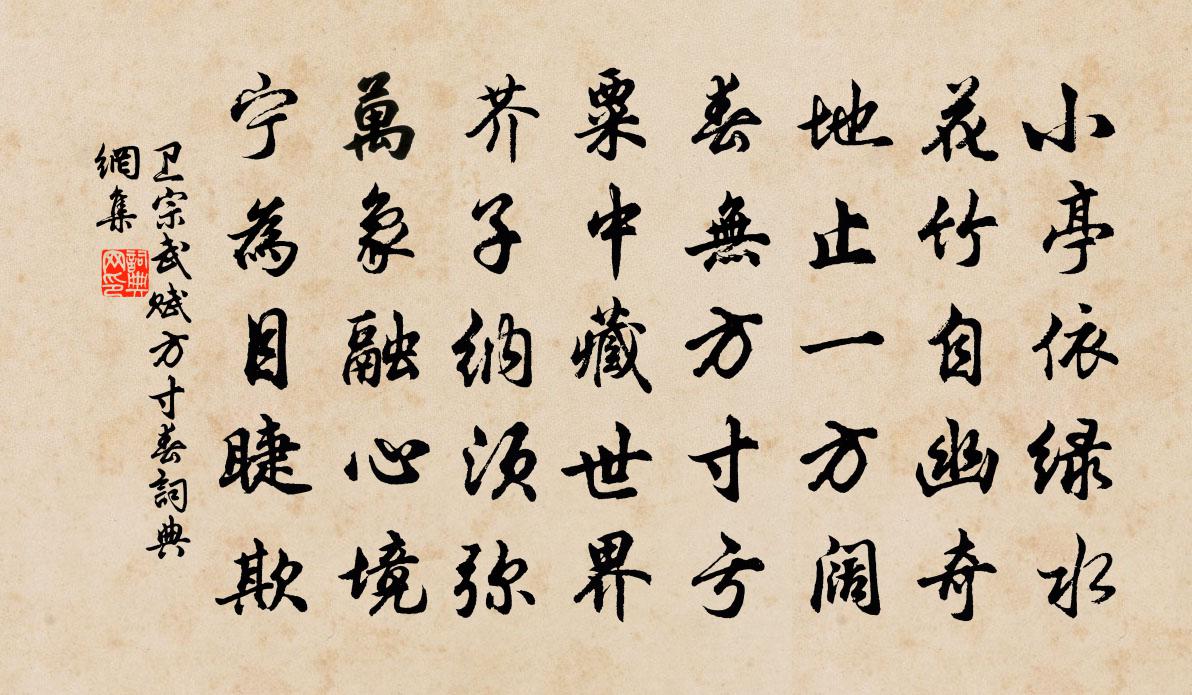 小亭依绿水
花竹自幽奇
地止一方阔
春無方寸亏
粟中藏世界
芥子纳须弥
萬象融心境
宁為目睫欺
卫宗武赋方寸春詞典
網集
詞典
网印